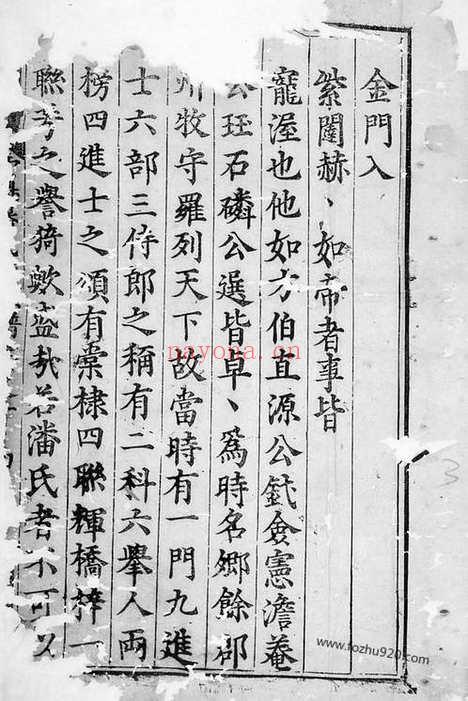 金門入
紫闥赫〻如帝者事皆
寵渥也他如方伯直源公鈛僉憲澹菴
公珏石磷公選皆卓〻為時名鄉餘郡
州牧守羅列天下故當時有一門九進
士六部三侍郎之稱有二科六舉人兩
榜四進士之頌有棠棣四聯輝橋梓一
聯芳之譽猗歟盛哉若潘氏者不可以
nayona.cn
www.fozhu920.com
3